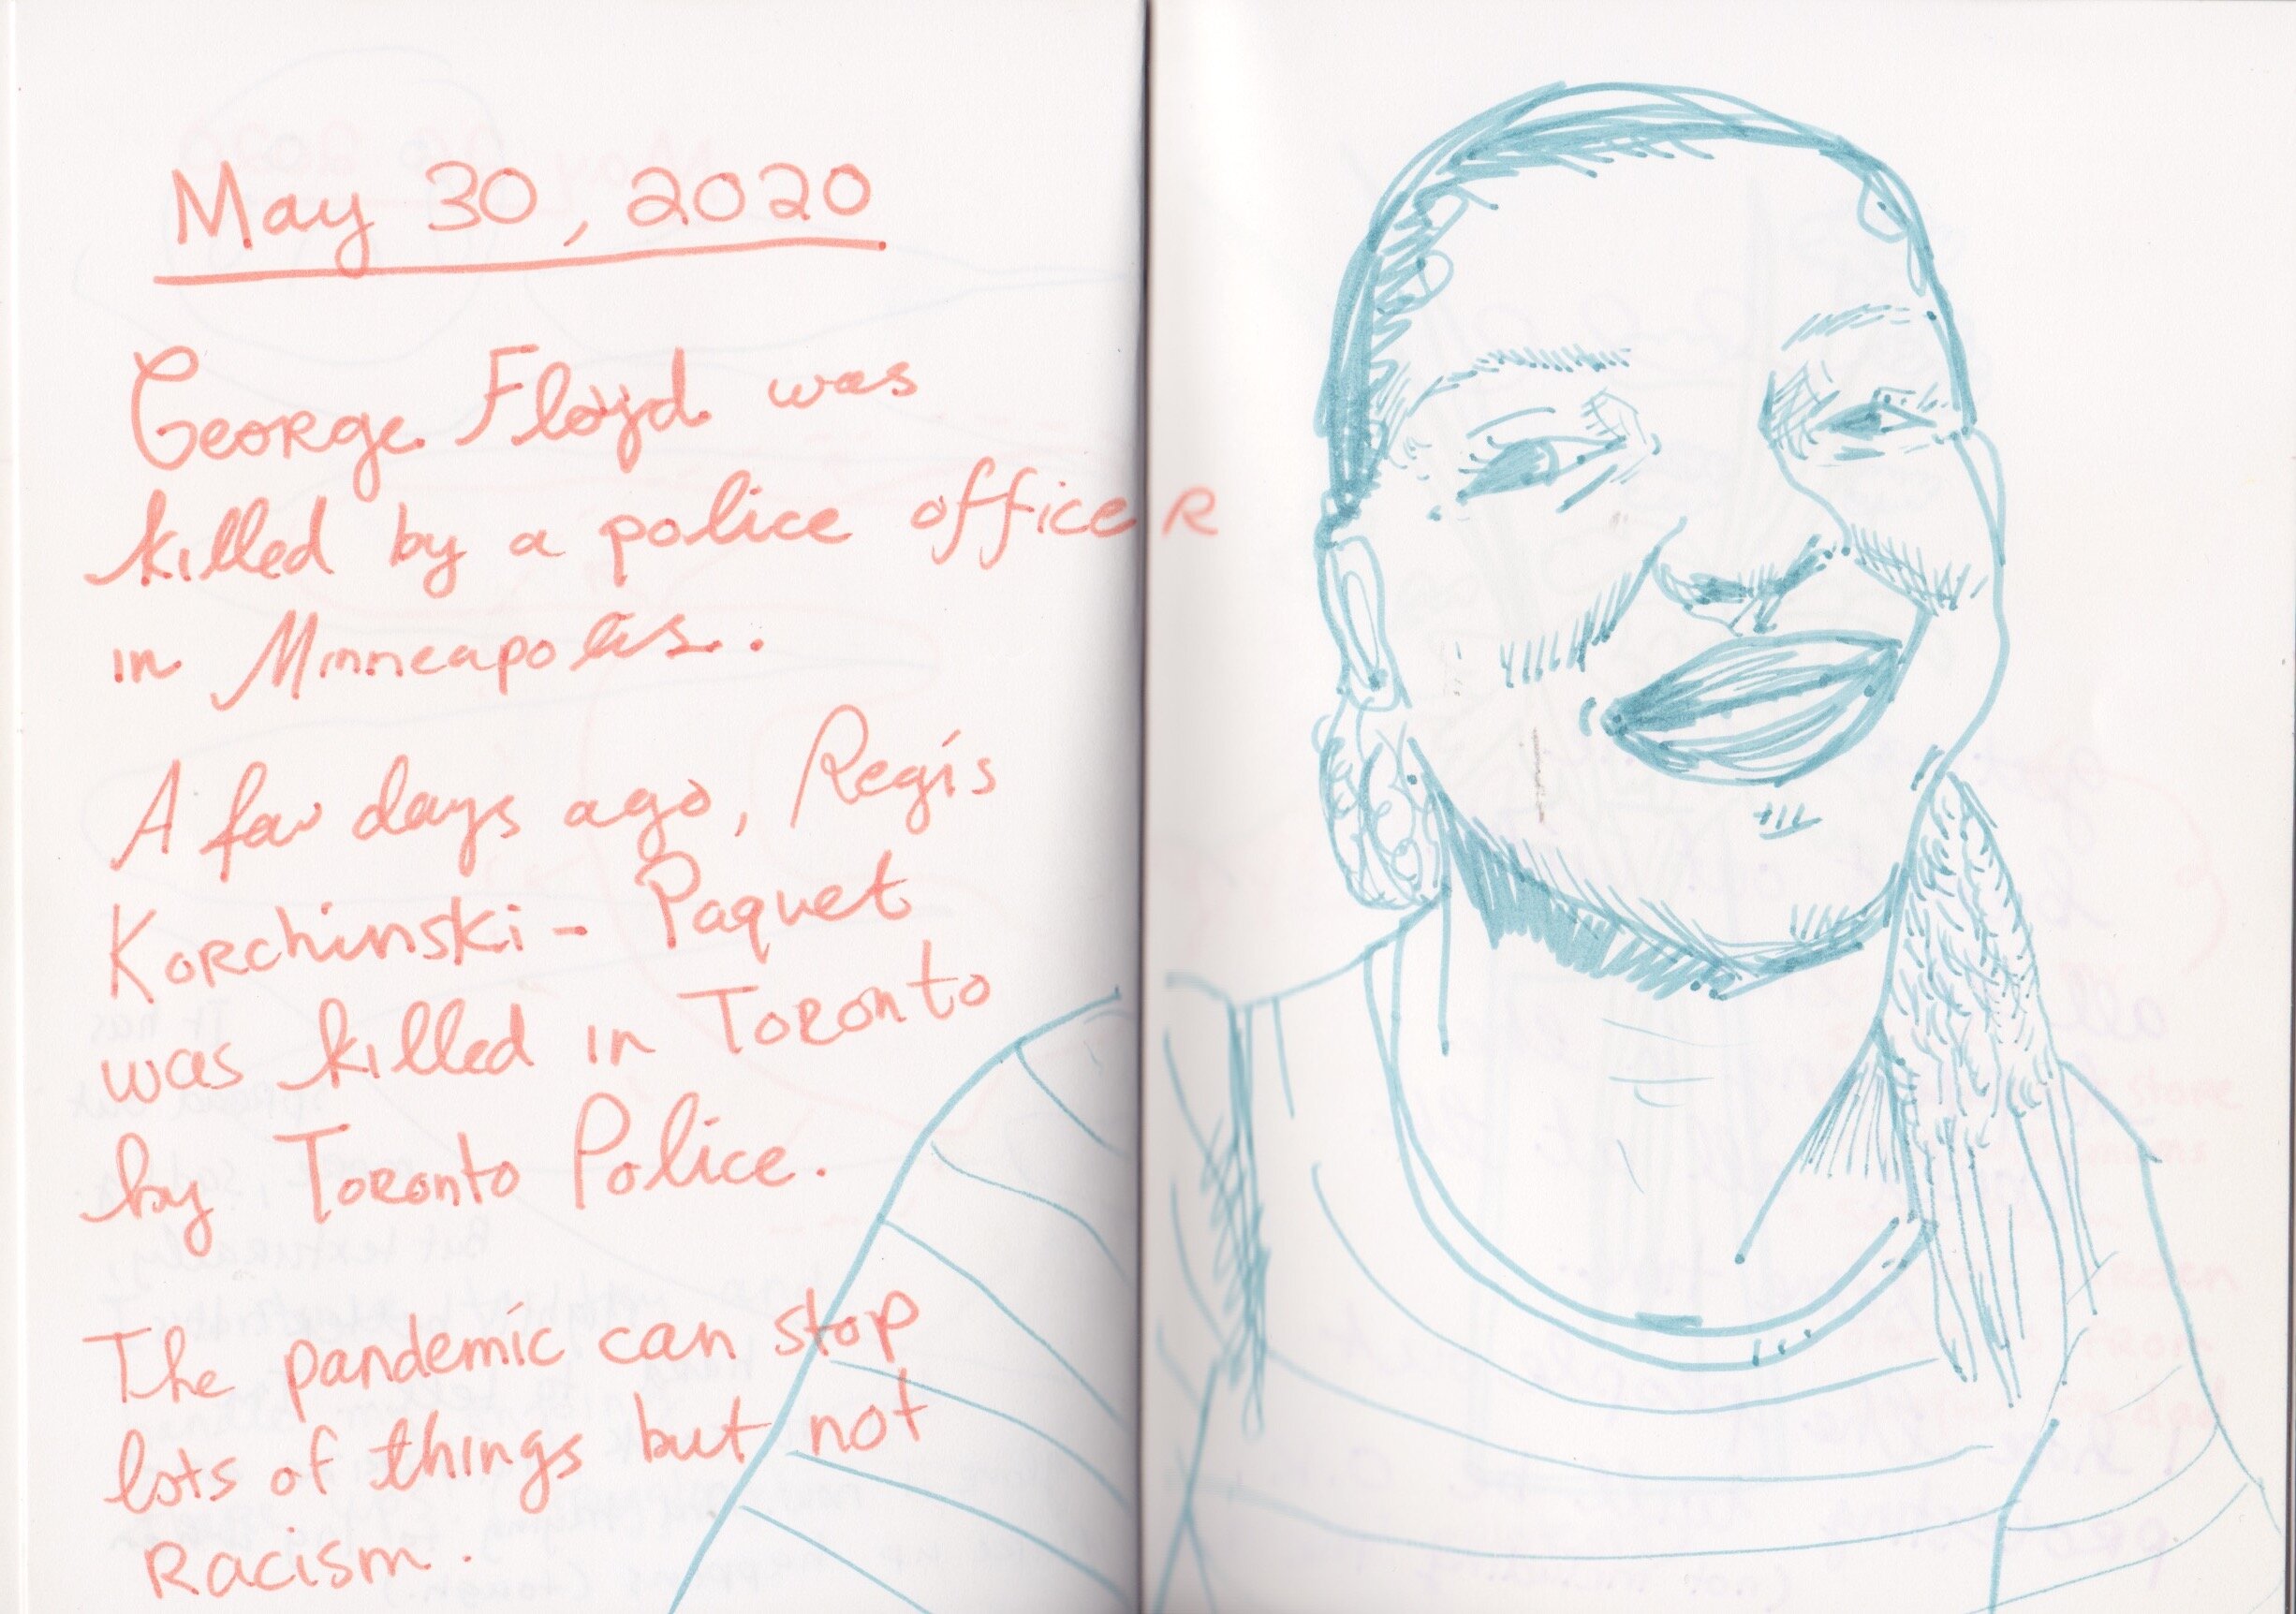 May 30, 2020
George Floyd was
killed by a police officeR
in Minneapolis.
A few days ago, Regis
Korchinski - Paquet
was killed in Toronto
by Toronto Police.
The pandemic can stop
lots of things but not
Racism.